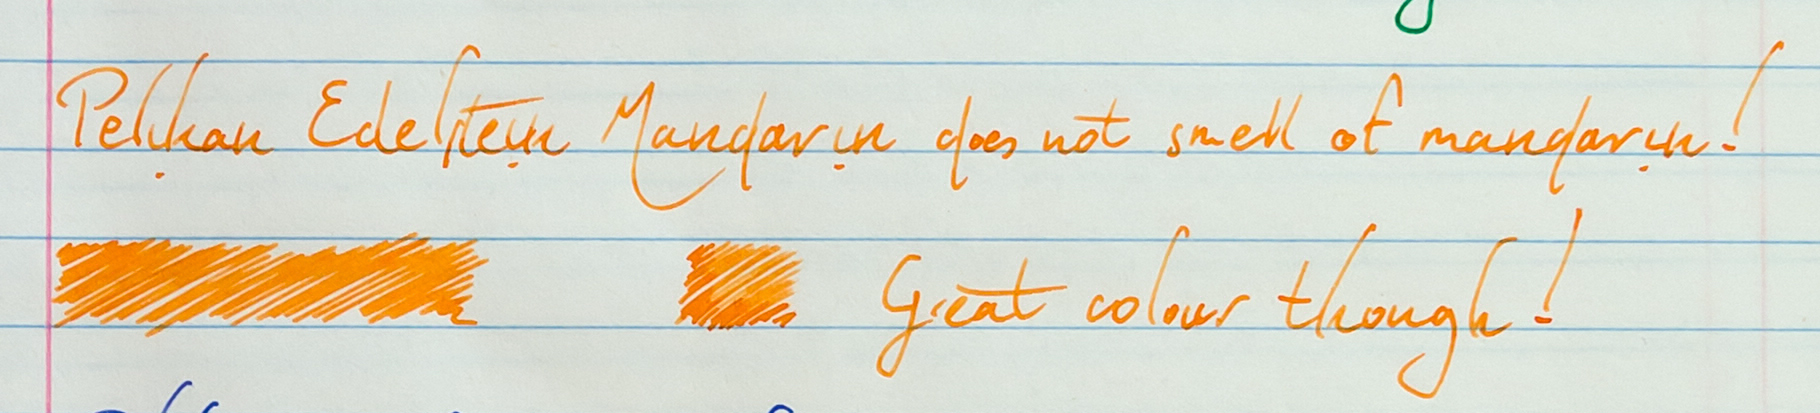 Pelikan Edelstein Mandarin does not smell of mandarin!
Great colour though!